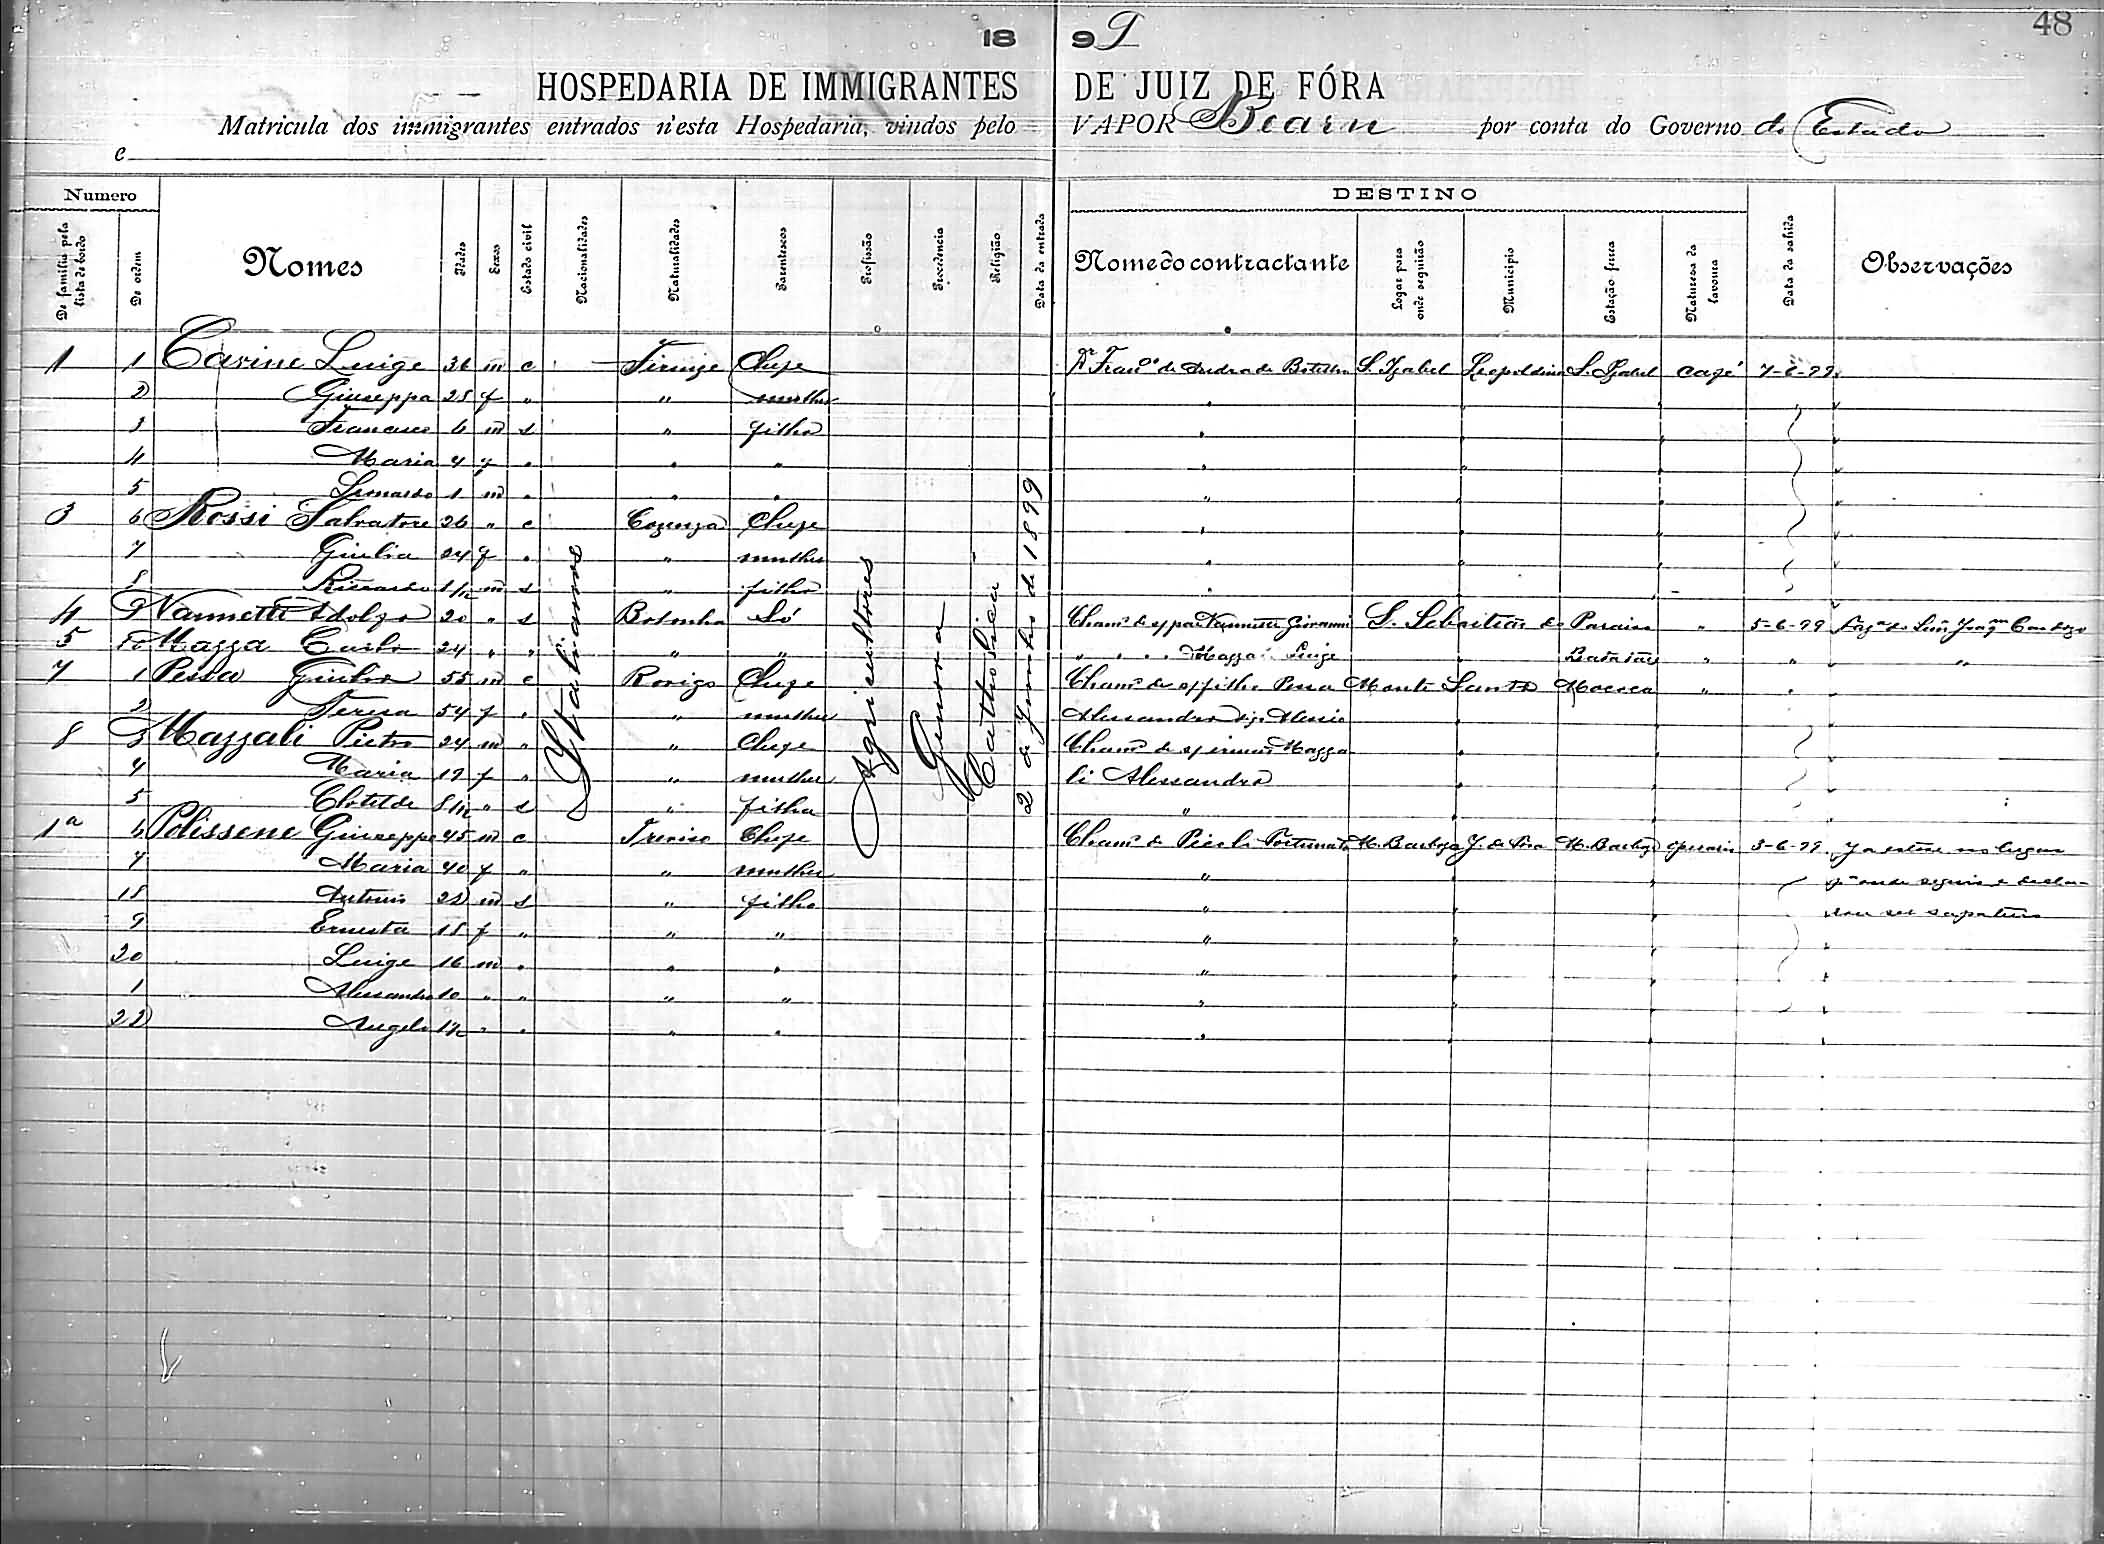 48
18 99
HOSPEDARIA DE IMMIGRANTES DE JUIZ DE FÓRA
Matricula dos immigrantes entrados n'esta Hospedaria, vindos pelo VAPOR Bearn por conta do Governo do Estado
e
Numero DESTINO
De familia pela lista de bordo De ordem Nomes Idades Sexos Estado civil Nacionalidades Naturalidades Parentescos Profissão Procedencia Religião Data da entrada Nome do contractante Logar para onde seguirão Municipio Estação ferrea Natureza da lavoura Data da sahida Observações
Italianos Agricultores Genova Catholica 2 de Junho de 1899
1 1 Carine Luige 36 m c Firenze Chefe Dr Franco de Andrade Botelho S. Izabel Leopoldina S. Izabel café 7-6-99
2 Giuseppa 25 f " " mulher
3 Francisco 6 m s " filho
4 Maria 4 f " " "
5 1 m " " "
3 6 Rossi Salvatore 26 " c Cozenza Chefe
7 Giulia 24 f " " mulher
8 Riccardo 1/12 m s " filho
4 9 Vannetti Adolfo 20 " s Bolonha Só Chamo de s/ pae Vannetti Giovanni S. Sebastião do Paraiso " 5-6-99
5 10 Mazza Carlo 24 " " " " " " " " Mazza Luige Batataes " " " "
7 1 Pessa Giulio 55 m c Rovigo Chefe Chamo de s/ filho Pessa Monte Santo Mococa " "
2 Teresa 54 f " " mulher Alessandro
8 3 Mazzali Pietro 24 m " " Chefe Chamo de s/ irmão Mazza
4 Maria 19 f " " mulher li Alessandro
5 Clotilde 8/12 " s " filha "
1a 6 Polissene Giuseppe 45 m c Treviso Chefe Chamo de Fortunato M. Barbosa J. de Fóra M. Barbosa operario 3-6-99 Ja esteve no lugar
7 Maria 40 f " " mulher " pa onde seguio e decla-
18 Antonio 22 m s " filho " rou ser sapateiro
9 Ernesta 18 f " " " "
20 Luige 16 m " " " "
1 Alessandro 10 " " " " "
22 Angelo " " " " "